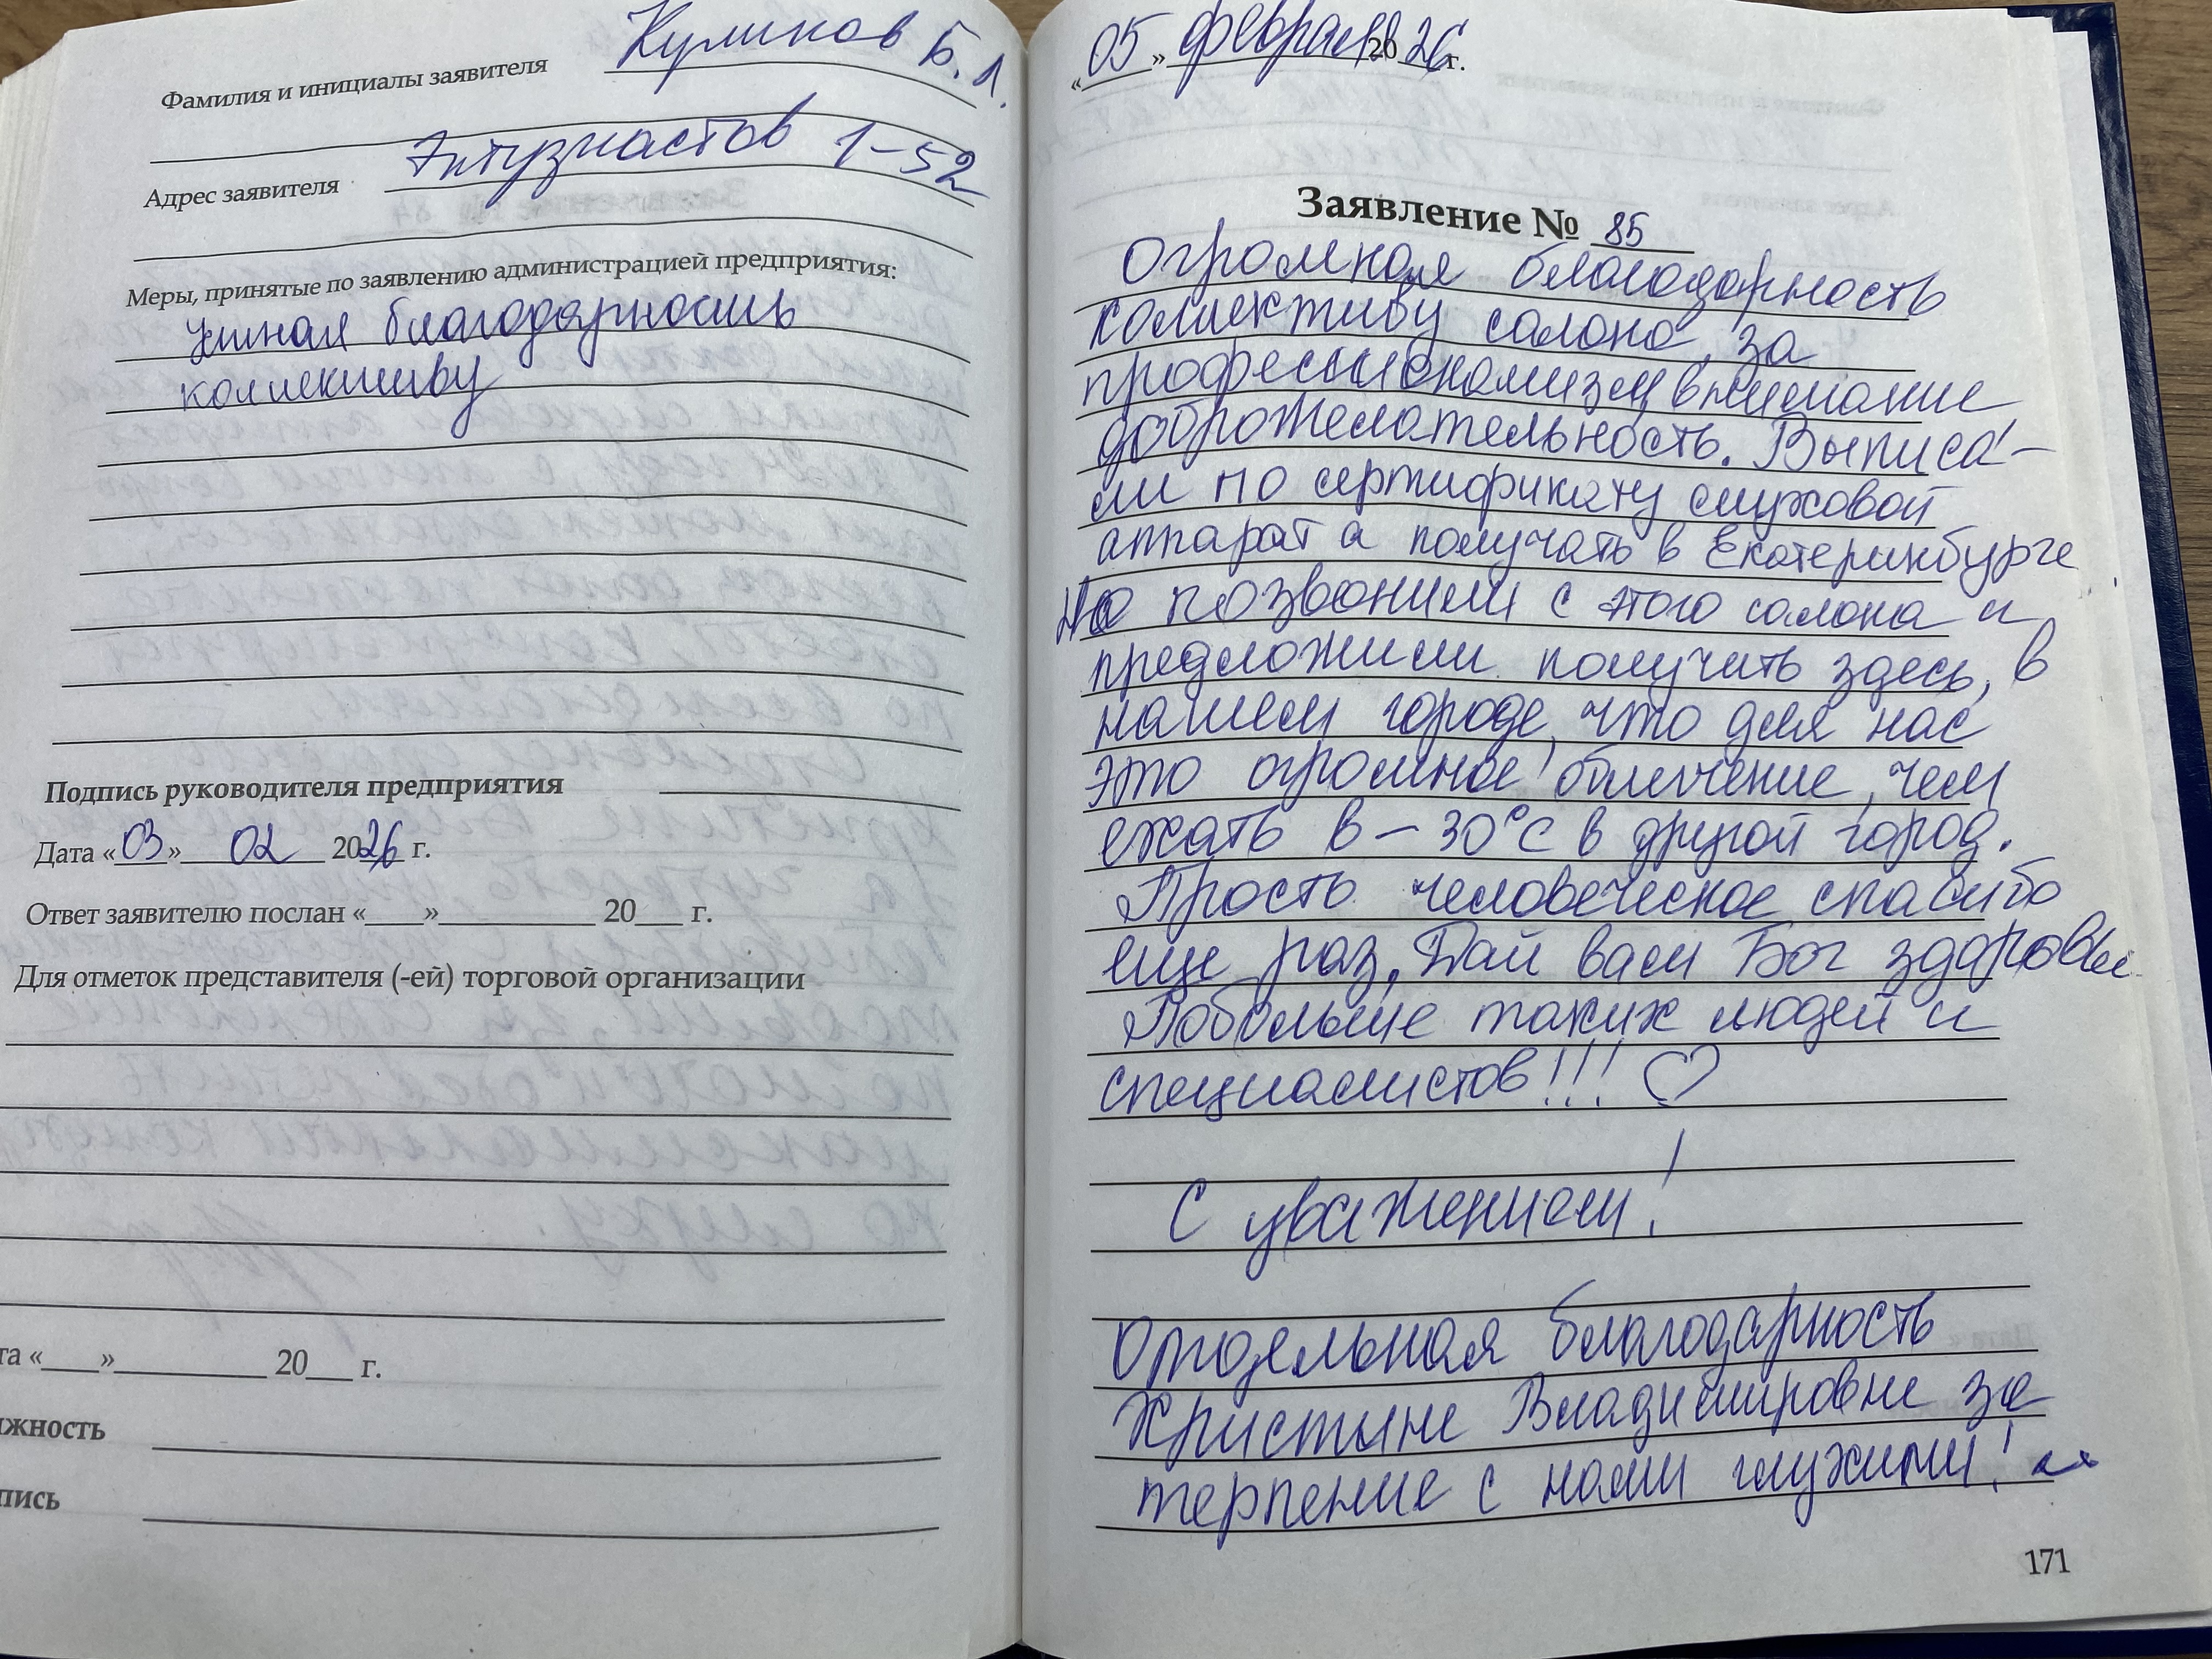 Фамилия и инициалы заявителя Куликов Б. Л.
Адрес заявителя Энтузиастов 1-52
Меры, принятые по заявлению администрацией предприятия:
Устная благодарность
коллективу
Подпись руководителя предприятия
Дата «03» 02 2026 г.
Ответ заявителю послан «___» 20___ г.
Для отметок представителя (-ей) торговой организации
та «___» 20___ г.
лжность
пись
«05» февраля 2026 г.
Заявление № 85
Огромная благодарность
коллективу салона, за
профессионализм, внимание
доброжелательность. Выписа-
ли по сертификату слуховой
аппарат а получать в Екатеринбурге
Но позвонили с этого салона и
предложили получить здесь, в
нашем городе, что для нас
это огромное облегчение, чем
ехать в -30°C в другой город.
Просто человеческое спасибо
еще раз, Дай вам Бог здоровья
Побольше таких людей и
специалистов!!! ♡
С уважением!
Отдельная благодарность
Христине Владимировне за
терпение с нами глухими!
171